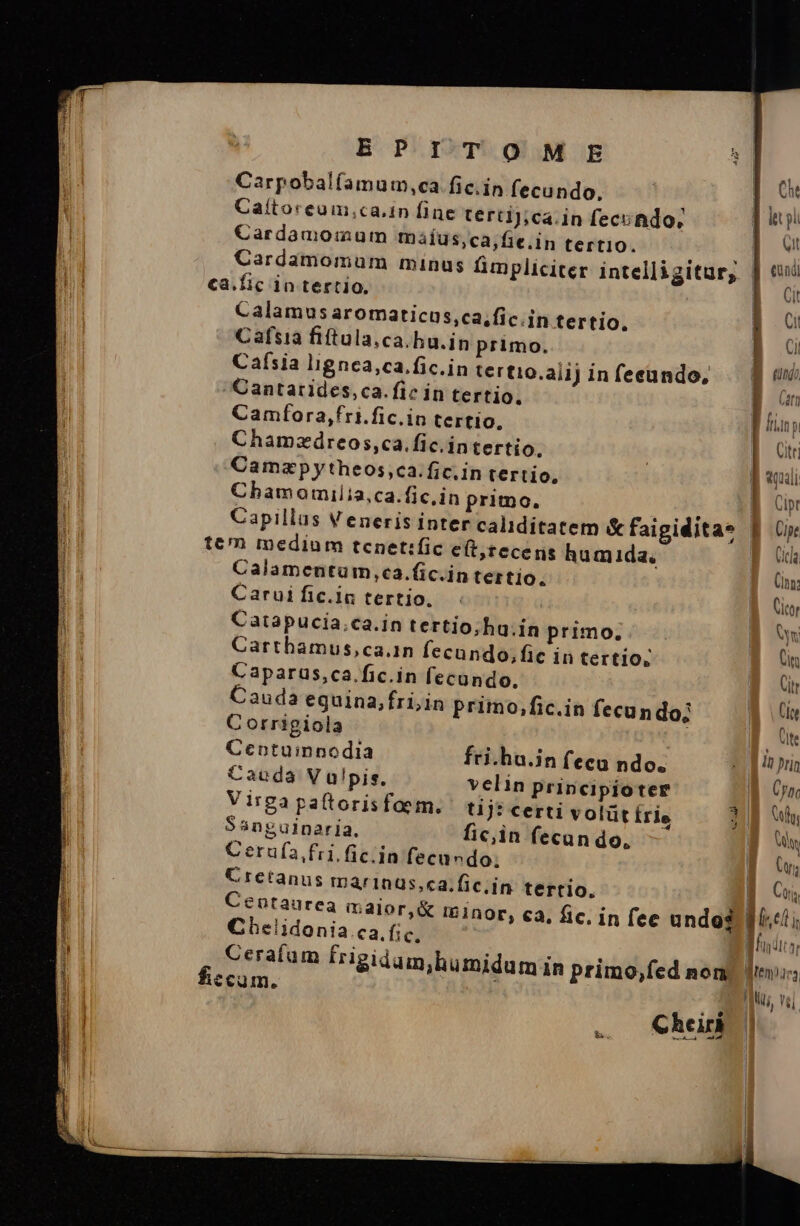 EPITOME
Carpobalſamum,ca.ſic.in ſecundo.
Caſtoreum,ca.in fine tertij;ca.in ſecundo.
Cardamomum maíus,ca,ſic.in tertio.
Cardamomum minus ſimpliciter intelligitur,
ca.ſic in tertio.
Calamus aromaticus,ca,ſic.in tertio.
Caſsia fiſtula,ca.hu.in primo.
Caſsia lignea,ca.ſic.in tertio.alij in ſecundo,
Cantarides,ca.ſic in tertio.
Camfora,fri.ſic.in tertio.
Chamædreos,ca.ſic.in tertio.
Camæpytheos,ca.ſic.in tertio.
Chamomilia,ca.ſic.in primo.
Capillus Veneris inter caliditatem & faigiditas
tem medium tenet:ſic eſt,recens humida.
Calamentum,ca.ſic.in tertio.
Carui ſic.in tertio.
Catapucia,ca.in tertio,hu.in primo.
Carthamus,ca.in ſecundo,ſic in tertio.
Caparus,ca.ſic.in ſecundo.
Cauda equina,fri,in primo,ſic.in ſecundo;
Corrigiola
Centuinnodia fri.hu.in ſecu ndo.
Cauda Vulpis. velin principio ter
Virga paſtoris fœm. tij: certi volūt frie
Sanguinaria. ſic,in ſecun do.
Ceruſa,fri.ſic.in ſecundo.
Cretanus marinus,ca.ſic.in tertio.
Centaurea maior,& minor, ca. ſic. in ſec undo
Chelidonia.ca.ſic.
Ceraſum frigidum,humidum in primo,ſed non
ſiccum.
Cheiri